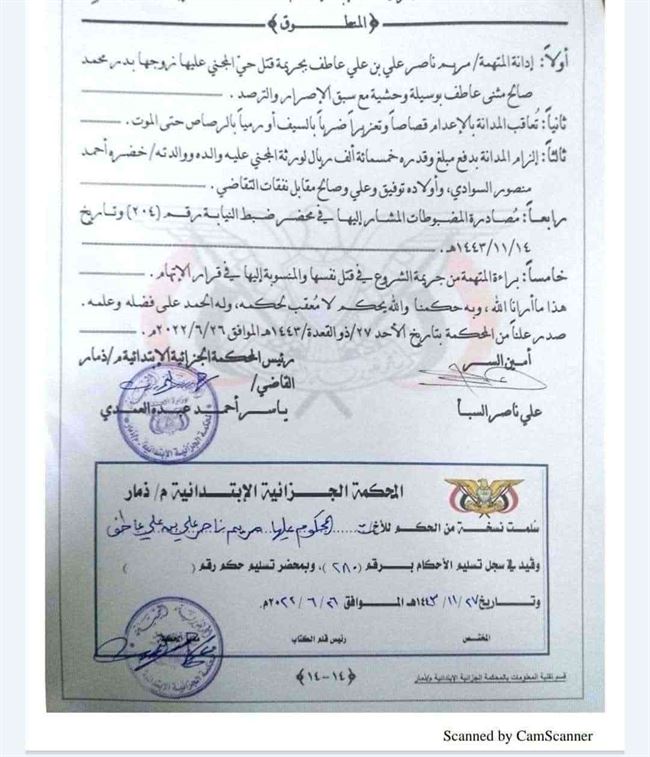 ﴿المنطـــوق﴾
أولاً: إدانة المتهمة/ مريم ناصر علي بن علي عاطف بجريمة قتل حيّ المجني عليها زوجها بدر محمد
صالح مثنى عاطف بوسيلة وحشية مع سبق الإصرار والترصد .
ثانياً: تُعاقب المدانة بالإعدام قصاصاً وتعزيراً ضرباً بالسيف أو رمياً بالرصاص حتى الموت .
ثالثاً: إلزام المدانة بدفع مبلغ وقدره خمسمائة ألف ريال لورثة المجني عليه والده ووالدته/ خضره أحمد
منصور السوادي، وأولاده توفيق وعلي وصالح مقابل نفقات التقاضي .
رابعاً: مُصادرة المضبوطات المشار إليها في محضر ضبط النيابة رقم (٢٠٤) وتاريخ
١٤٤٣/١١/١٤هـ .
خامساً: براءة المتهمة من جريمة الشروع في قتل نفسها والمنسوبة إليها في قرار الإتهام .
هذا ما أرانا الله، وبه حكمنا والله يحكم لا مُعقب لحكمه، وله الحمد على فضله وعلمه .
صدر علناً من المحكمة بتاريخ الأحد ٢٧/ذو القعدة/١٤٤٣هـ الموافق ٢٠٢٢/٦/٢٦م .
أمين السر
رئيس المحكمة الجزائية الإبتدائية م/ ذمار
القاضي/
علي ناصر السبأ
ياسر أحمد عبده العمدي
المحكمة الجزائية الإبتدائية م/ ذمار
سُلمت نسخة من الحكم للأخت ..... المحكوم عليها .. مريم ناصر علي بن علي عاطف
وقيد في سجل تسليم الأحكام برقم (٢٨٠)، وبمحضر تسليم حكم رقم ( )
وتاريخ ٢٧/ ١١/ ١٤٤٣هـ الموافق ٢٦/ ٦/ ٢٠٢٢م.
المختص
رئيس قلم الكتاب
قسم تقنية المعلومات بالمحكمة الجزائية الإبتدائية م/ذمار
﴿١٤-١٤﴾
Scanned by CamScanner